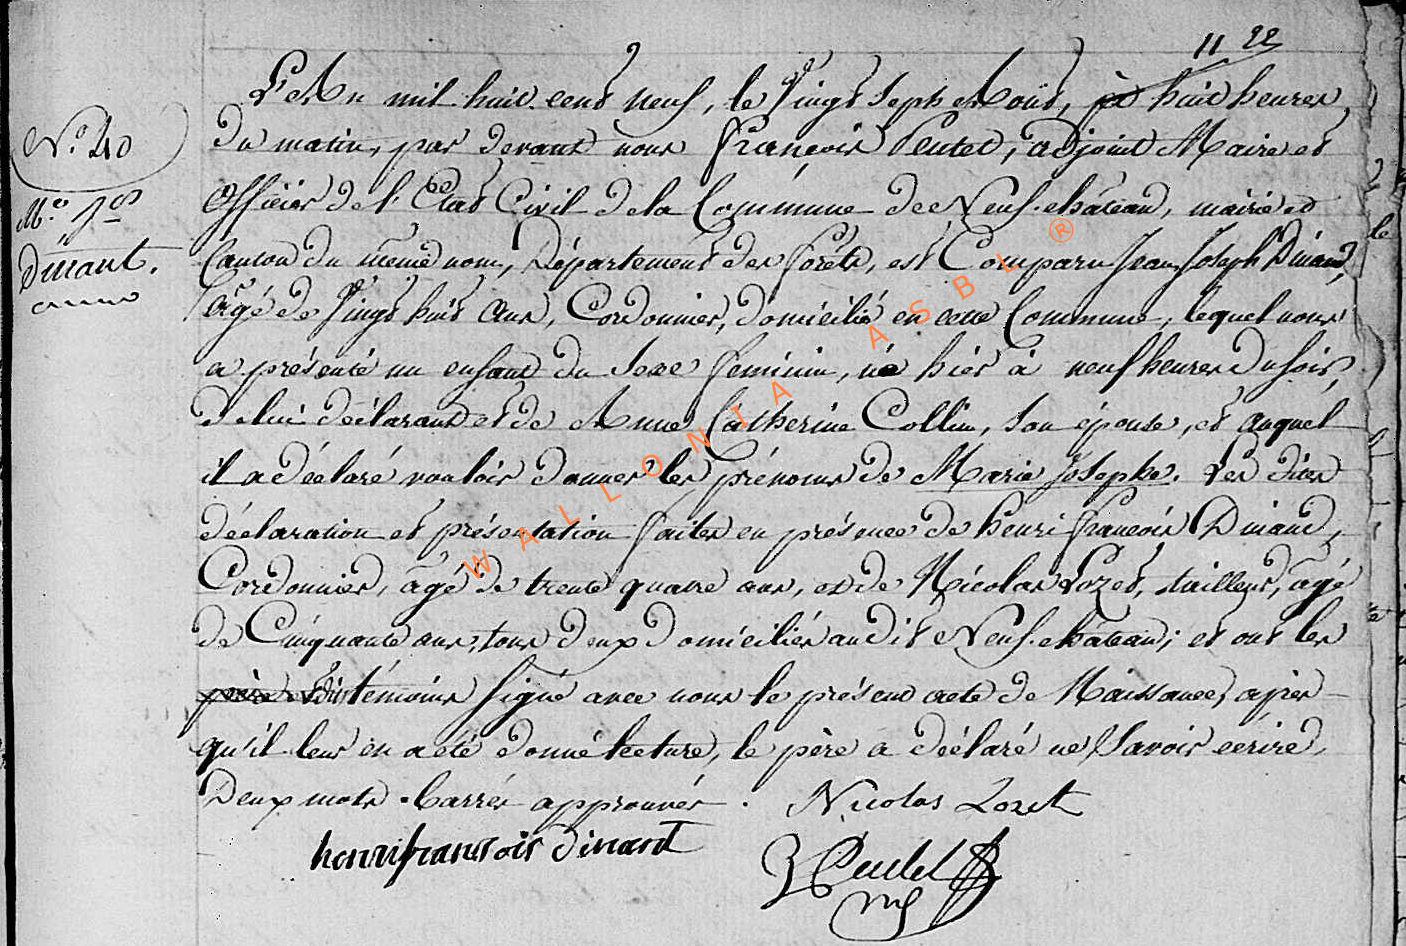 11 22
L'An mil huit cent neuf, le Vingt Sept Aout, à huit heures
du matin, par devant nous François Peutet, adjoint Maire et
N.º 40
Officier de l'Etat Civil de la Commune de Neufchateau, mairie et
M.ie J.he
Canton du même nom, Département des forêts, est Comparu Jean Joseph Dinant,
Dinant.
Agé de Vingt huit Ans, Cordonnier, domicilié en cette Commune, lequel nous
a présenté un enfant du Sexe feminin, né hier à neuf heures du soir,
de lui déclarant et de Anne Catherine Collin, Son épouse, et auquel
il a déclaré vouloir donner les prénoms de Marie Josephe. Les dites
déclaration et présentation faites en présence de henri françois Dinant,
Cordonnier, âgé de trente quatre ans, et de Nicolas Lozet, tailleur, âgé
de Cinquante ans, tous deux domiciliés audit Neufchateau; et ont les
père et dits témoins signé avec nous le présent acte de Naissance, après
qu'il leur en a été donné lecture, le père a déclaré ne Savoir écrire,
Deux mots Barrés approuvés. Nicolas Lozet
henri francois dinant
W A L L O N I A A S B L ®